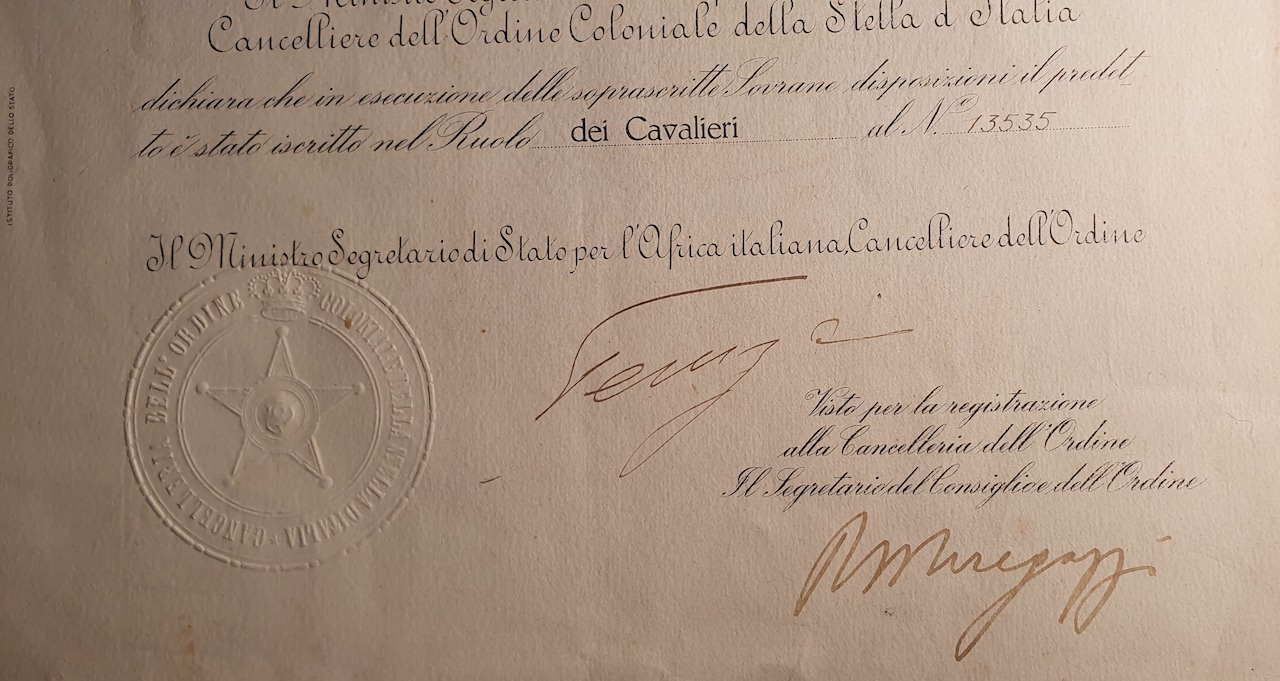 Il Ministro
Cancelliere dell'Ordine Coloniale della Stella d'Italia
dichiara che in esecuzione delle soprascritte Sovrane disposizioni il predet-
to è stato iscritto nel Ruolo dei Cavalieri al N.º 13535
Il Ministro Segretario di Stato per l'Africa italiana, Cancelliere dell'Ordine
CANCELLERIA DELL'ORDINE COLONIALE DELLA STELLA D'ITALIA
Visto per la registrazione
alla Cancelleria dell'Ordine
Il Segretario del Consiglio e dell'Ordine
ISTITUTO POLIGRAFICO DELLO STATO